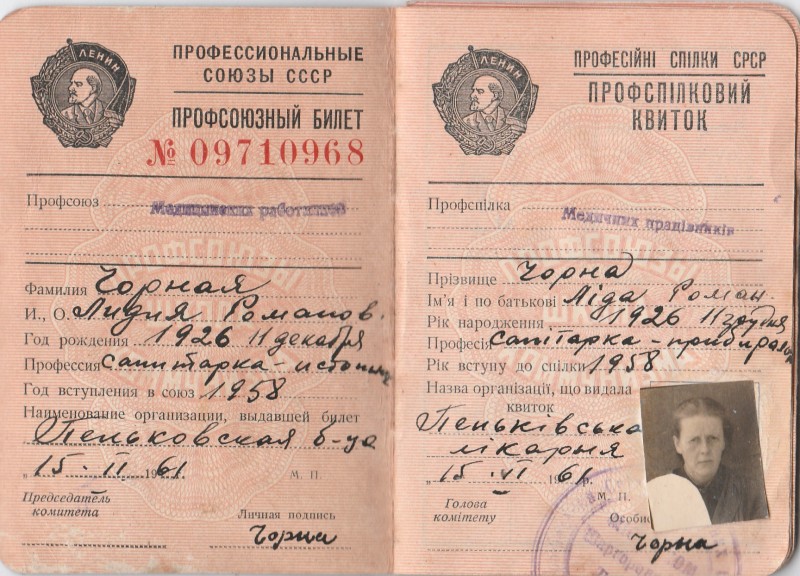 ЛЕНИН
ПРОФЕССИОНАЛЬНЫЕ
СОЮЗЫ СССР
ПРОФСОЮЗНЫЙ БИЛЕТ
№ 09710968
Профсоюз Медицинских работников
Фамилия Чорная
И., О. Лидия Романов.
Год рождения 1926 11 декабря
Профессия санитарка-истопник
Год вступления в союз 1958
Наименование организации, выдавшей билет
Пеньковская б-ца
„15. II 1961
М. П.
Председатель
комитета
Личная подпись
Чорна
ЛЕНИН
ПРОФЕСІЙНІ СПІЛКИ СРСР
ПРОФСПІЛКОВИЙ
КВИТОК
Профспілка Медичних працівників
Прізвище Чорна
Ім'я і по батькові Ліда Роман.
Рік народження 1926 11 грудня
Професія санітарка-прибираль
Рік вступу до спілки 1958
Назва організації, що видала
квиток
Пеньківська
лікарня
„15. VI 1961 р.
М. П.
Голова
комітету
Особис
Чорна